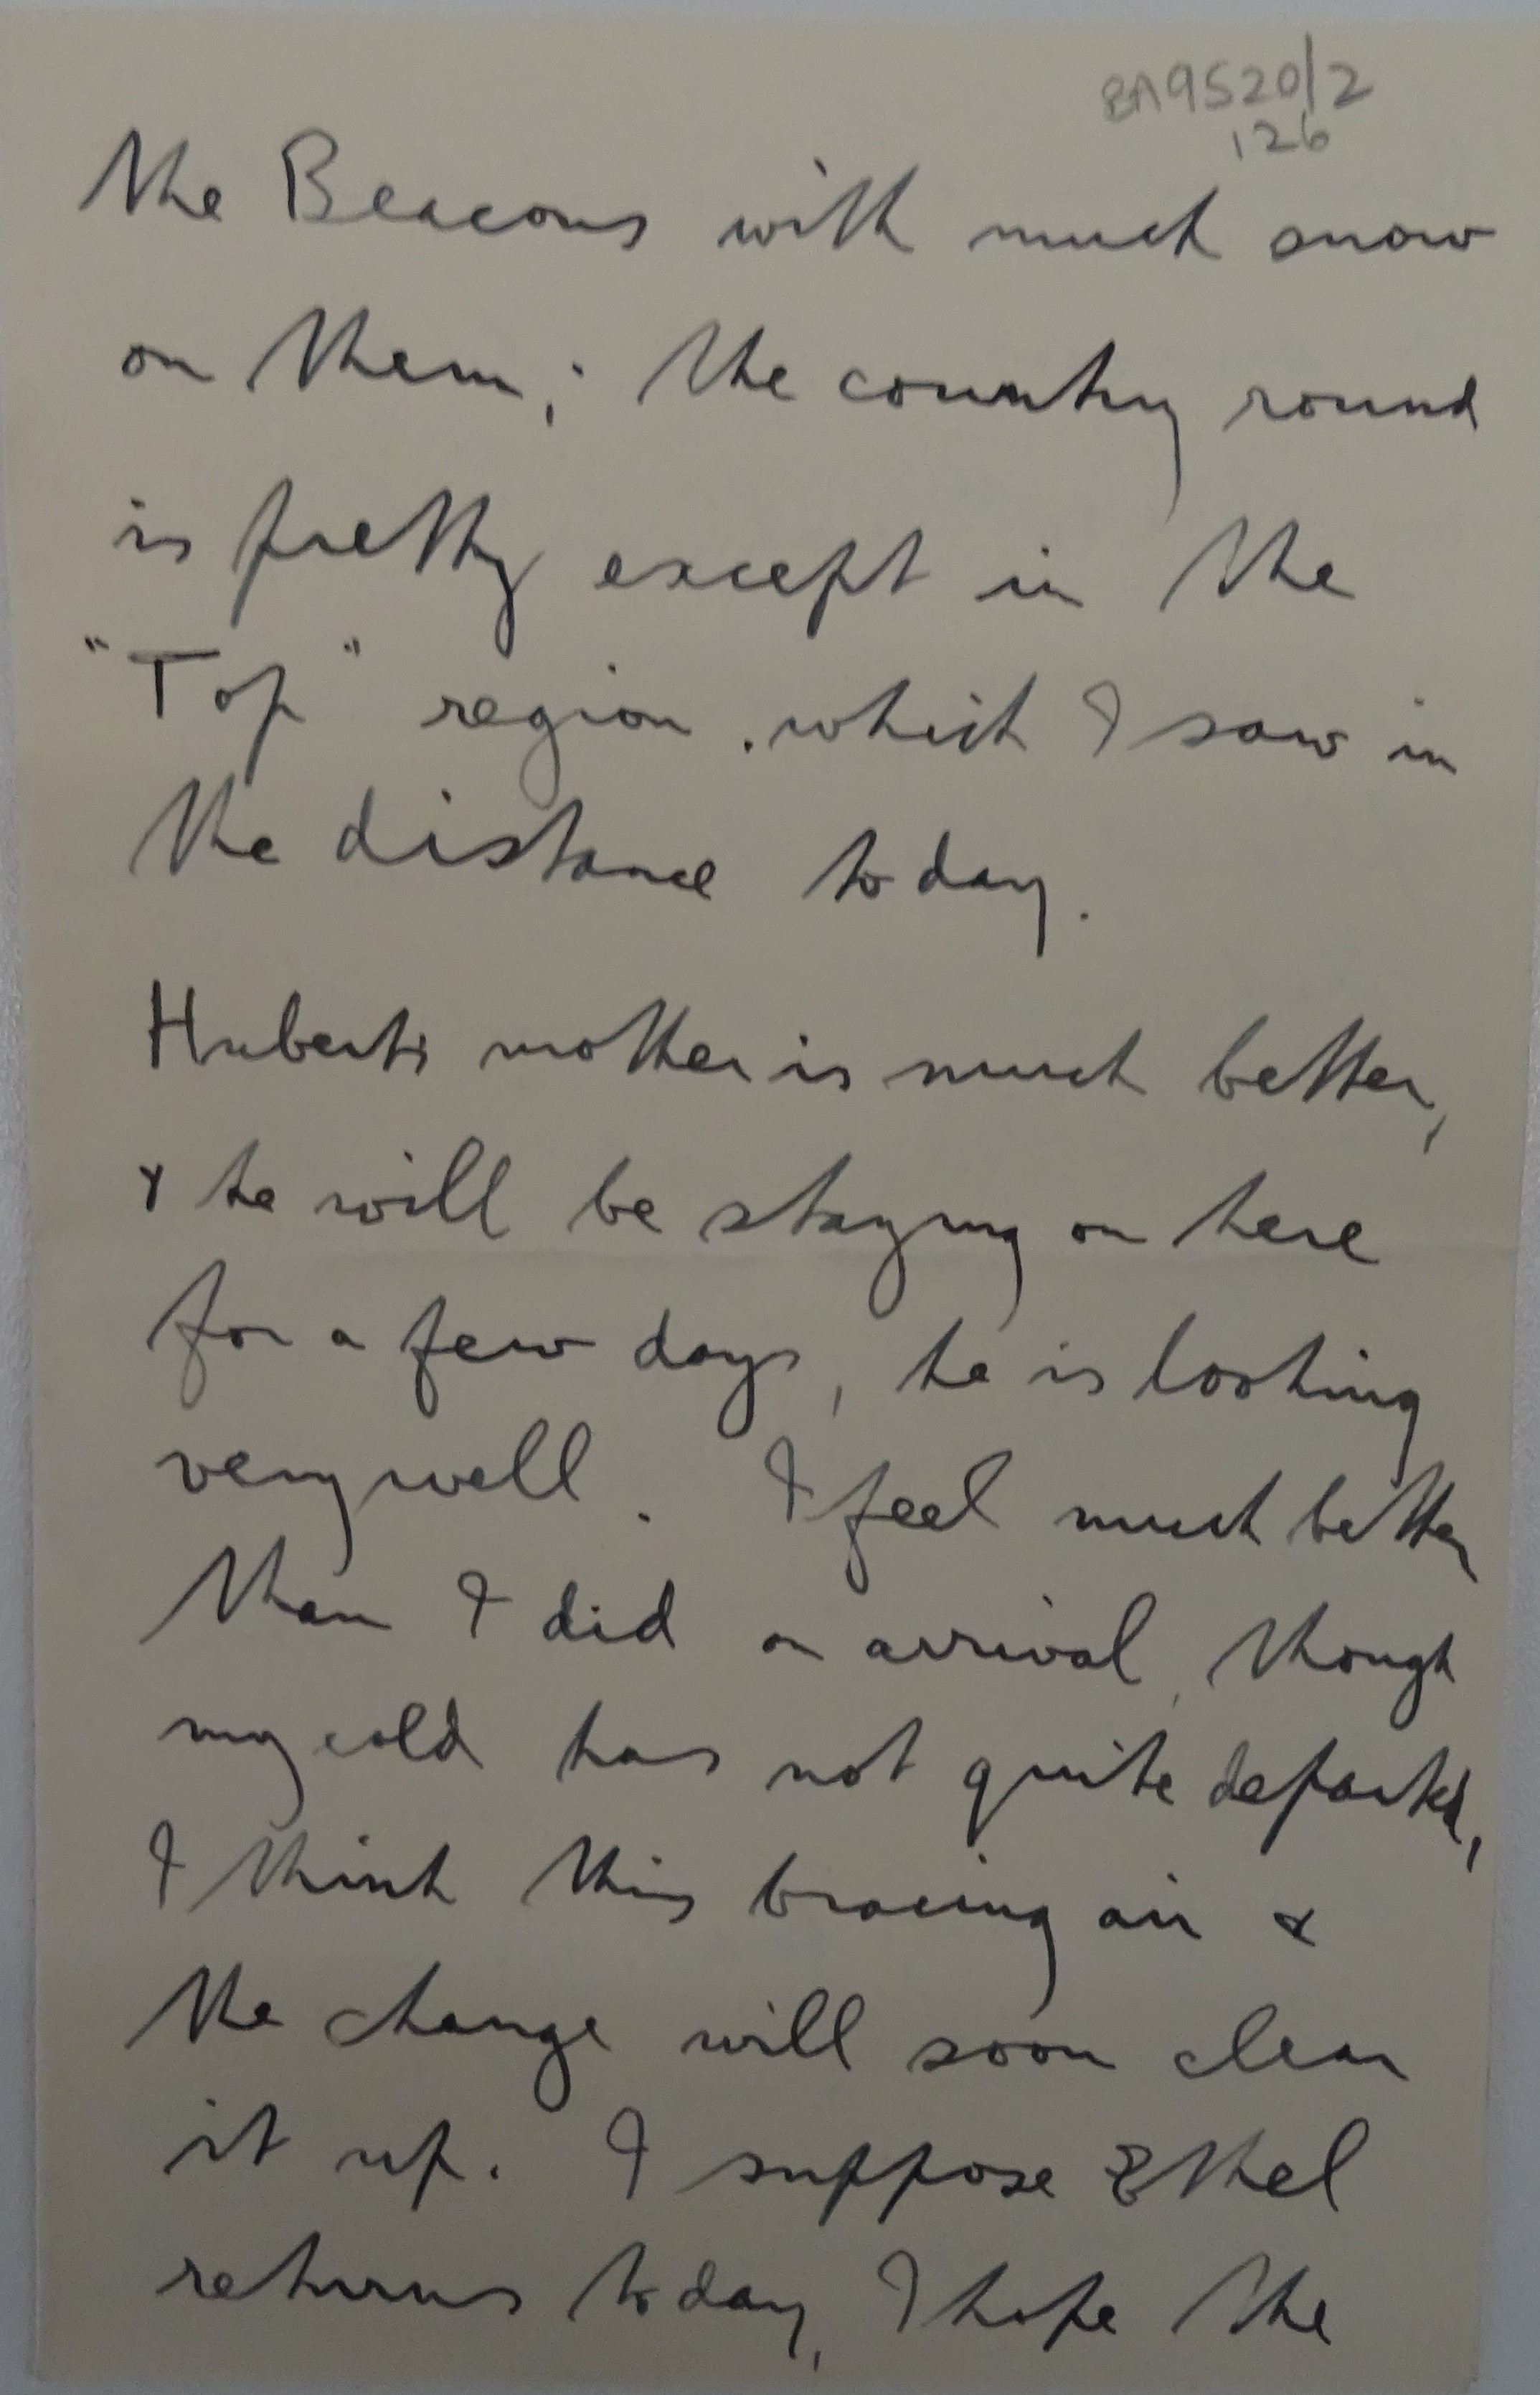 BA9520/2
126
the Beacons with much snow
on them; the country round
is pretty except in the
"Top" region, which I saw in
the distance today.
Hubert's mother is much better,
& he will be staying on here
for a few days, he is looking
very well. I feel much better
than I did on arrival, though
my cold has not quite departed,
I think this bracing air &
the change will soon clear
it up. I suppose Ethel
returns today, I hope the